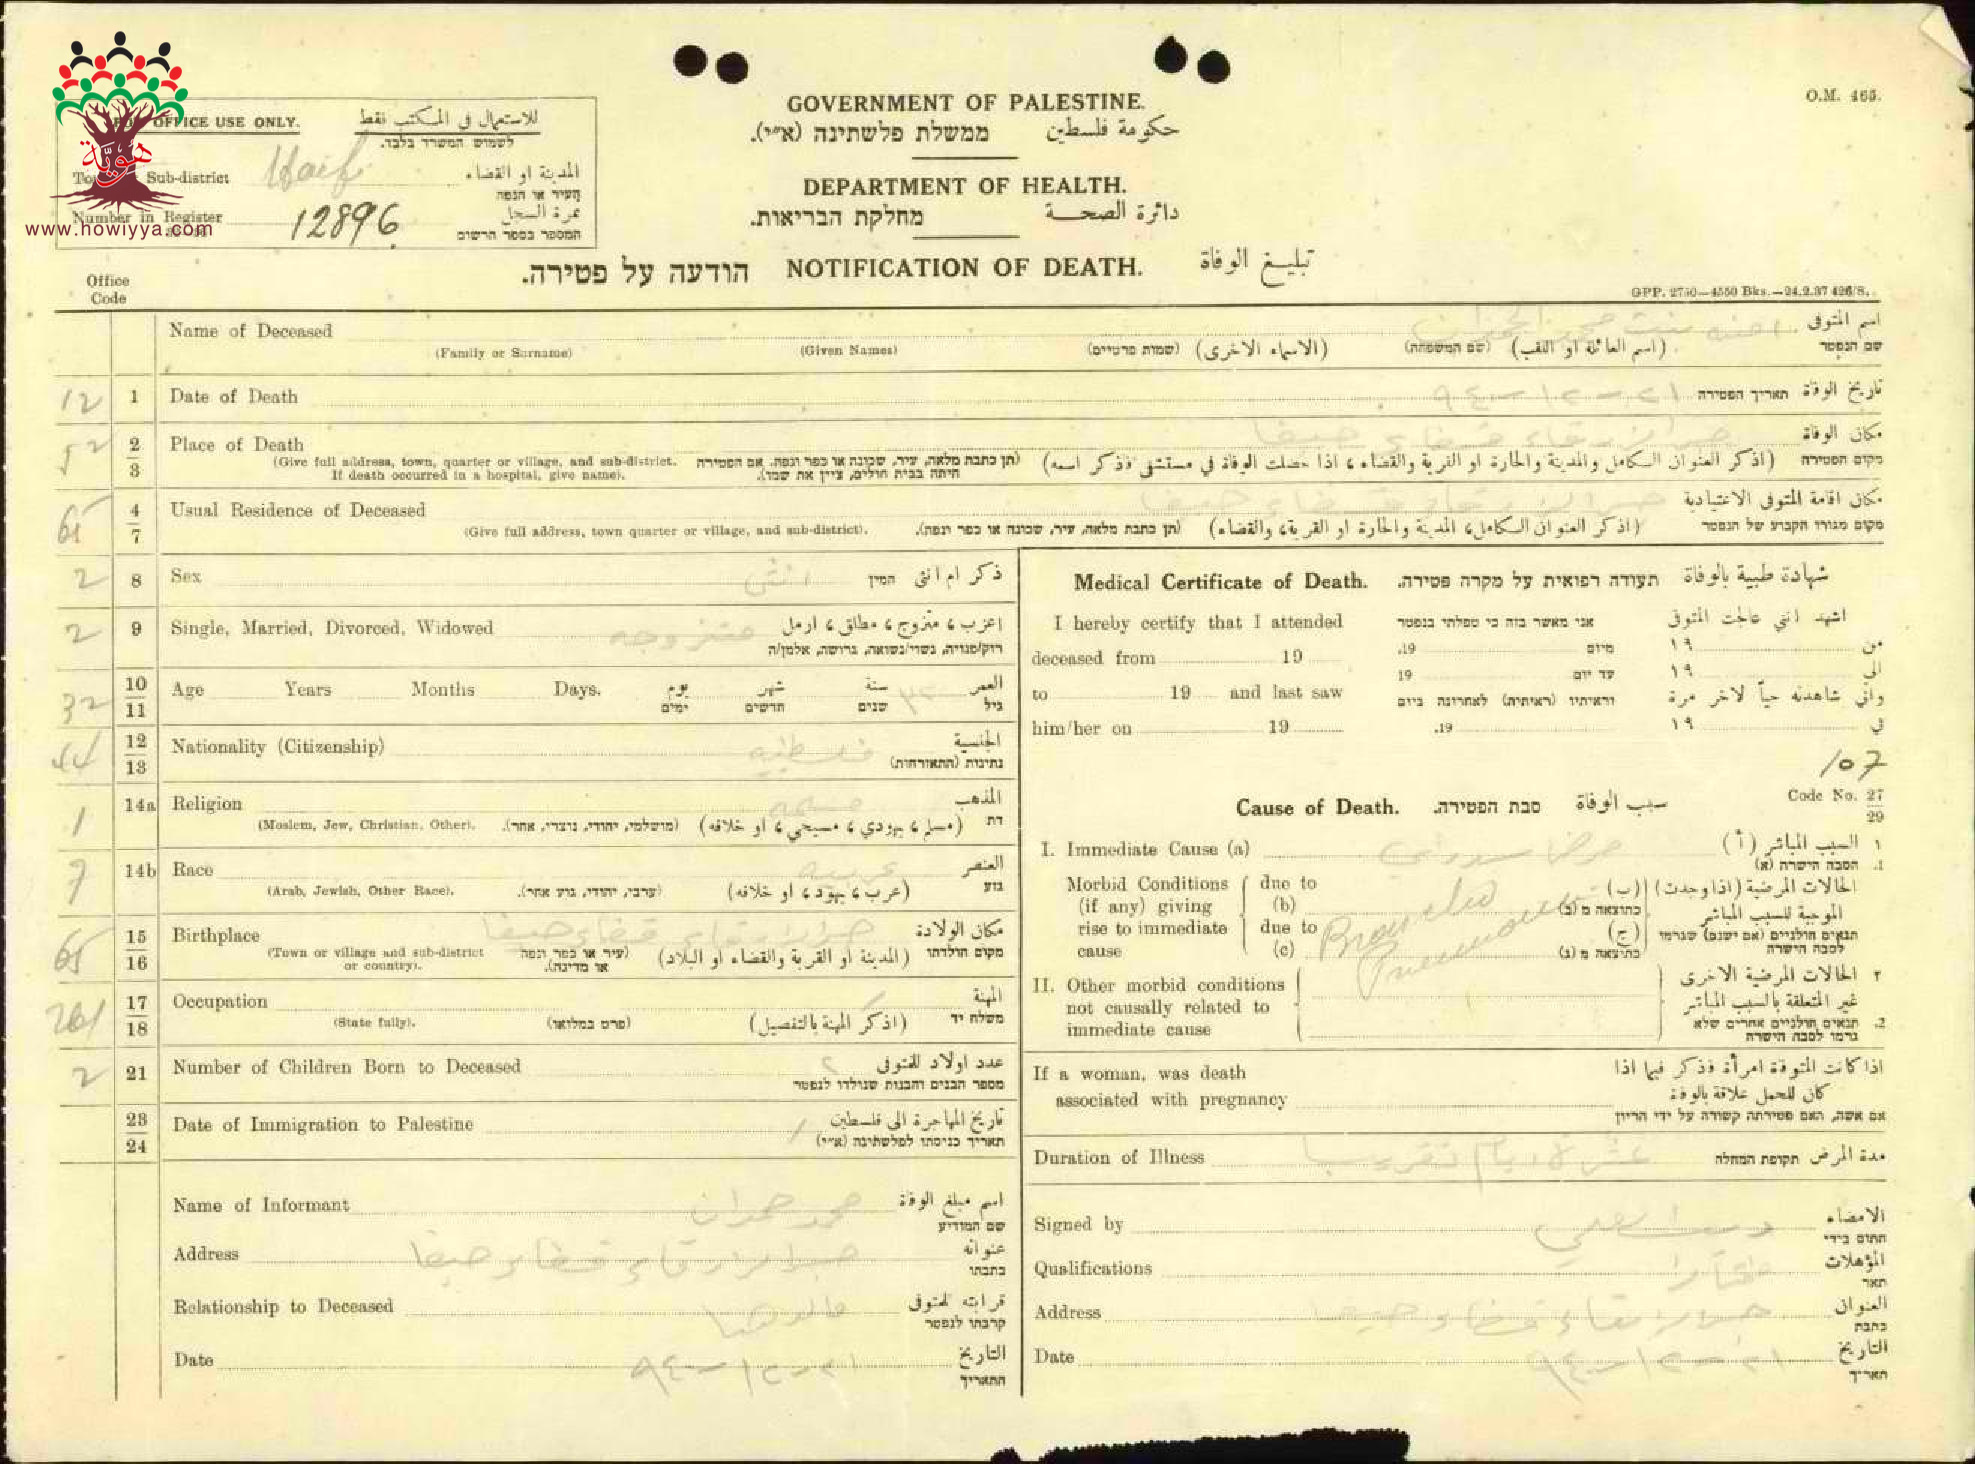 O.M. 465.
FOR OFFICE USE ONLY. للاستعمال في المكتب فقط
לשמוש המשרד בלבד.
هوية
Sub-district Haifa المدينة او القضاء
העיר או הנפה
Number in Register 12896 نمرة السجل
המספר בספר הרשום
www.howiyya.com
GOVERNMENT OF PALESTINE.
ממשלת פלשתינה (א״י). حكومة فلسطين
DEPARTMENT OF HEALTH.
מחלקת הבריאות. دائرة الصحة
הודעה על פטירה. NOTIFICATION OF DEATH. تبليغ الوفاة
Office Code
GPP. 2750—4550 Bks.—24.2.37 426/S.
Name of Deceased بنت محمد اسم المتوفى
(Family or Surname) (Given Names) (שמות פרטיים) (الاسماء الاخرى) (שם המשפחה) (اسم العائلة او اللقب) שם הנפטר
12 1 Date of Death ٢١-١٢-٩٤٠ תאריך הפטירה تاريخ الوفاة
52 2 3 Place of Death قضاء حيفا مكان الوفاة
(Give full address, town, quarter or village, and sub-district. (תן כתבת מלאה, עיר, שכונה או כפר ונפה. אם הפטירה (اذكر العنوان الكامل والمدينة والحارة او القرية والقضاء، اذا حصلت الوفاة في مستشفى فذكر اسمه) מקום הפטירה
If death occurred in a hospital, give name). היתה בבית חולים, ציין את שמו).
65 4 7 Usual Residence of Deceased قضاء حيفا مكان اقامة المتوفى الاعتيادية
(Give full address, town quarter or village, and sub-district). (תן כתבת מלאה, עיר, שכונה או כפר ונפה). (اذكر العنوان الكامل، المدينة والحارة او القرية، والقضاء) מקום מגורו הקבוע של הנפטר
2 8 Sex انثى המין ذكر ام انثى
2 9 Single, Married, Divorced, Widowed متزوجه اعزب، متزوج، مطلق، ارمل
רוק/פנויה, נשוי/נשואה, גרושה, אלמן/ה
32 10 11 Age Years Months Days. يوم شهر سنة ٣٢ العمر
ימים חדשים שנים גיל
44 12 13 Nationality (Citizenship) فلسطينيه الجنسية
נתינות (התאזרחות)
1 14a Religion مسلمه المذهب
(Moslem, Jew, Christian, Other). (מושלמי, יהודי, נוצרי, אחר). (مسلم، يهودي، مسيحي، او خلافه) דת
7 14b Race عربيه العنصر
(Arab, Jewish, Other Race). (ערבי, יהודי, גזע אחר). (عرب، يهود، او خلافه) גזע
65 15 16 Birthplace قضاء حيفا مكان الولادة
(Town or village and sub-district or country). (עיר או כפר ונפה או מדינה). (المدينة او القرية والقضاء او البلاد) מקום הולדתו
261 17 18 Occupation المهنة
(State fully). (פרט במלואו) (اذكر المهنة بالتفصيل) משלח יד
2 21 Number of Children Born to Deceased ٢ عدد اولاد للمتوفى
מספר הבנים והבנות שנולדו לנפטר
23 24 Date of Immigration to Palestine / تاريخ المهاجرة الى فلسطين
תאריך כניסתו לפלשתינה (א״י)
Name of Informant محمد حمدان اسم مبلغ الوفاة
שם המודיע
Address قضاء حيفا عنوانه
כתבתו
Relationship to Deceased قرابته للمتوفى
קרבתו לנפטר
Date ٢١-١٢-٩٤٠ التاريخ
התאריך
Medical Certificate of Death. תעודה רפואית על מקרה פטירה. شهادة طبية بالوفاة
I hereby certify that I attended אני מאשר בזה כי טפלתי בנפטר اشهد انني عالجت المتوفى
deceased from 19 19. מיום ١٩ من
19 עד יום ١٩ الى
to 19 and last saw וראיתיו (ראיתיה) לאחרונה ביום واني شاهدته حياً لاخر مرة
him/her on 19 19. ١٩ في
107
Cause of Death. סבת הפטירה. سبب الوفاة Code No. 27 29
I. Immediate Cause (a) السبب المباشر (أ) ١
הסבה הישרה (א) 1.
Morbid Conditions (if any) giving rise to immediate cause
due to (b)
due to (c)
Broncho Pneumonia
الحالات المرضية (اذا وجدت) (ب)
כתוצאה מ (ב) الموجبة للسبب المباشر
(ج) תנאים חולניים (אם ישנם) שגרמו
כתוצאה מ (ג) לסבה הישרה
II. Other morbid conditions not causally related to immediate cause
٢ الحالات المرضية الاخرى
غير المتعلقة بالسبب المباشر
2. תנאים חולניים אחרים שלא
גרמו לסבה הישרה
If a woman, was death اذا كانت المتوفاة امرأة فذكر فيما اذا
associated with pregnancy كان للحمل علاقة بالوفاة
אם אשה, האם פטירתה קשורה על ידי הריון
Duration of Illness ايام تقريبا תקופת המחלה مدة المرض
Signed by الامضاء
חתום בידי
Qualifications مختار المؤهلات
תאר
Address قضاء حيفا العنوان
כתבת
Date ٢١-١٢-٩٤٠ التاريخ
תאריך